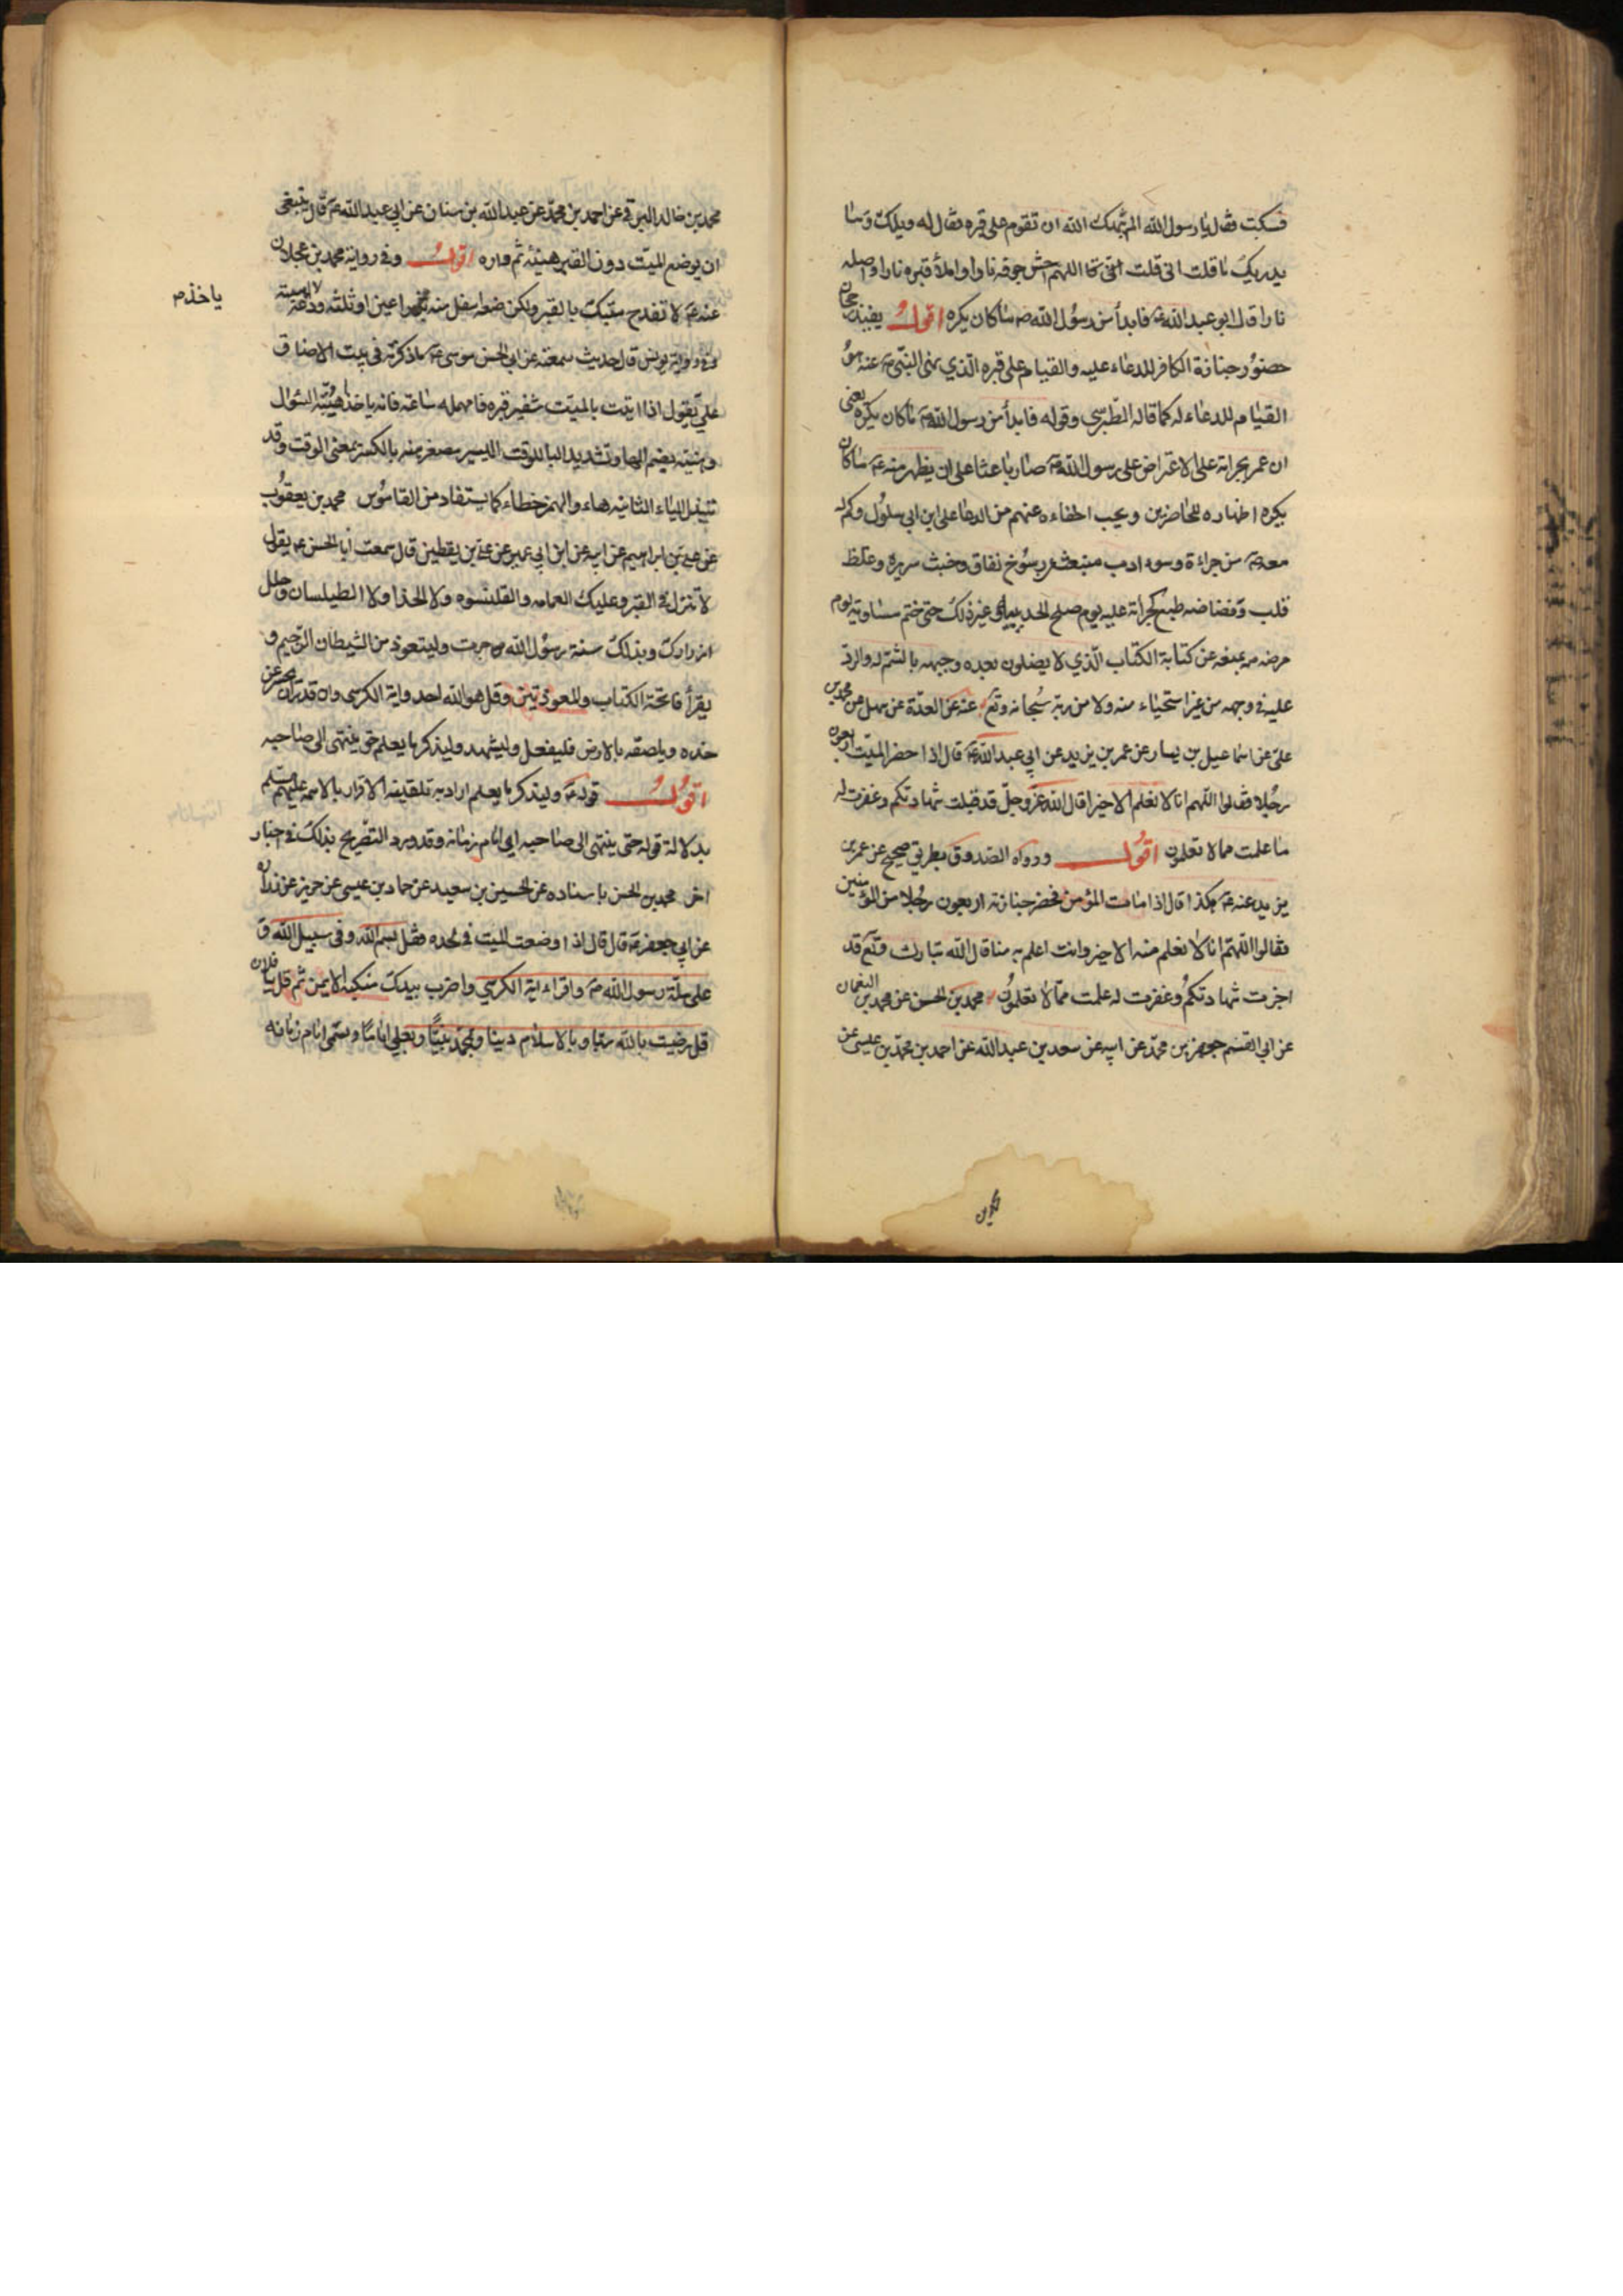 فسكت فقال يا رسول الله الم ينهك الله ان تقوم على قبره فقال له ويلك وما
يدريك ما قلت انى قلت اللهم احش جوفه نارا واملأ قبره نارا واصله
نارا قال ابو عبد الله ع فابدأ من رسول الله ص ما كان يكره اقول يفيد رجحان
حضور جنازة الكافر للدعاء عليه والقيام على قبره الذي نهى النبي ص عنه هو
القيام للدعاء له كما قاله الطبرسي وقوله فابدأ من رسول الله ص ما كان يكره يعنى
ان عمر بجراته على الاعتراض على رسول الله ص صار باعثا على ان يظهر منه ع ما كان
يكره اظهاره للحاضرين ويحب اخفاءه عنهم من الدعا على ابن ابي سلول وكم له
معه ص من جراءة وسوء ادب منبعث عن رسوخ نفاق وخبث سريرة وغلظ
قلب وفضاضه طبع كجرأته عليه يوم صلح الحديبية وغير ذلك حتى ختم مساويه يوم
مرضه ص بمنعه عن كتابة الكتاب الذي لا يضلون بعده وجبهه بالشتم له والرد
عليه في وجهه من غير استحياء منه ولا من ربه سبحانه وتع عنه عن العدة عن سهل عن محمد بن
على عن اسماعيل بن يسار عن عمر بن يزيد عن ابي عبد الله ع قال اذا حضر الميت اربعون
رجلا فقالوا اللهم انا لا نعلم الا خيرا قال الله عز وجل قد قبلت شهادتكم وغفرت له
ما علمت مما لا تعلمون اقول ورواه الصدوق بطريق صحيح عن عمر بن
يزيد عنه ع هكذا قال اذا مات المؤمن فحضر جنازته اربعون رجلا من المؤمنين
فقالوا اللهم انا لا نعلم منه الا خيرا وانت اعلم به منا قال الله تبارك وتع قد
اجزت شهادتكم وغفرت له علمت مما لا تعلمون محمد بن الحسن عن محمد بن النعمان
عن ابي القسم جعفر بن محمد عن ابيه عن سعد بن عبد الله عن احمد بن محمد بن عيسى عن
محمد بن خالد البرقي عن احمد بن محمد عن عبد الله بن سنان عن ابي عبد الله ع قال ينبغى
ان يوضع الميت دون القبر هنيئة ثم واره اقول وفي رواية محمد بن عجلان
عنه ع لا تفدح ميتك بالقبر ولكن ضعه اسفل منه بذراعين او ثلثه ودعه
وفي رواية يونس قال حديث سمعته عن ابي الحسن موسى ع ما ذكرته في بيت الا ضاق
علي يقول اذا اتيت بالميت شفير قبره فامهله ساعة فانه ياخذ اهبته للسؤال
وهنيّة بضم الها وتشديد اليا للوقت اليسير مصغر هنه بالكسر بمعنى الوقت وقد
تبدل الياء الثانيه هاء والهمز خطاء كما يستفاد من القاموس محمد بن يعقوب
عن علي بن ابراهيم عن ابيه عن ابن ابي عمير عن علي بن يقطين قال سمعت ابا الحسن ع يقول
لا تنزل في القبر وعليك العمامه والقلنسوه ولا الحذا ولا الطيلسان وحلل
ازرارك وبذلك سنة رسول الله ص جرت وليتعوذ من الشيطان الرجيم و
يقرأ فاتحة الكتاب والمعوذتين وقل هو الله احد واية الكرسى وان قدر ان يحسر عن
خده ويلصقه بالارض فليفعل وليشهد وليذكر ما يعلم حتى ينتهى الى صاحبه
اقول قوله ع وليذكر ما يعلم اراد به تلقينه الاقرار بالائمه عليهم السلم
بدلالة قوله حتى ينتهى الى صاحبه اى امام زمانه وقد ورد التصريح بذلك في اخبار
اخر محمد بن الحسن باسناده عن الحسين بن سعيد عن حماد بن عيسى عن حريز عن زرارة
عن ابي جعفر ع قال قال اذا وضعت الميت في لحده فقل بسم الله وفي سبيل الله و
على ملة رسول الله ص واقراء اية الكرسي واضرب بيدك منكبه الايمن ثم قل يا فلان
قل رضيت بالله ربا وبالاسلام دينا وبمحمد نبيا وبعلي اماما ويسمى امام زمانه
ياخذم